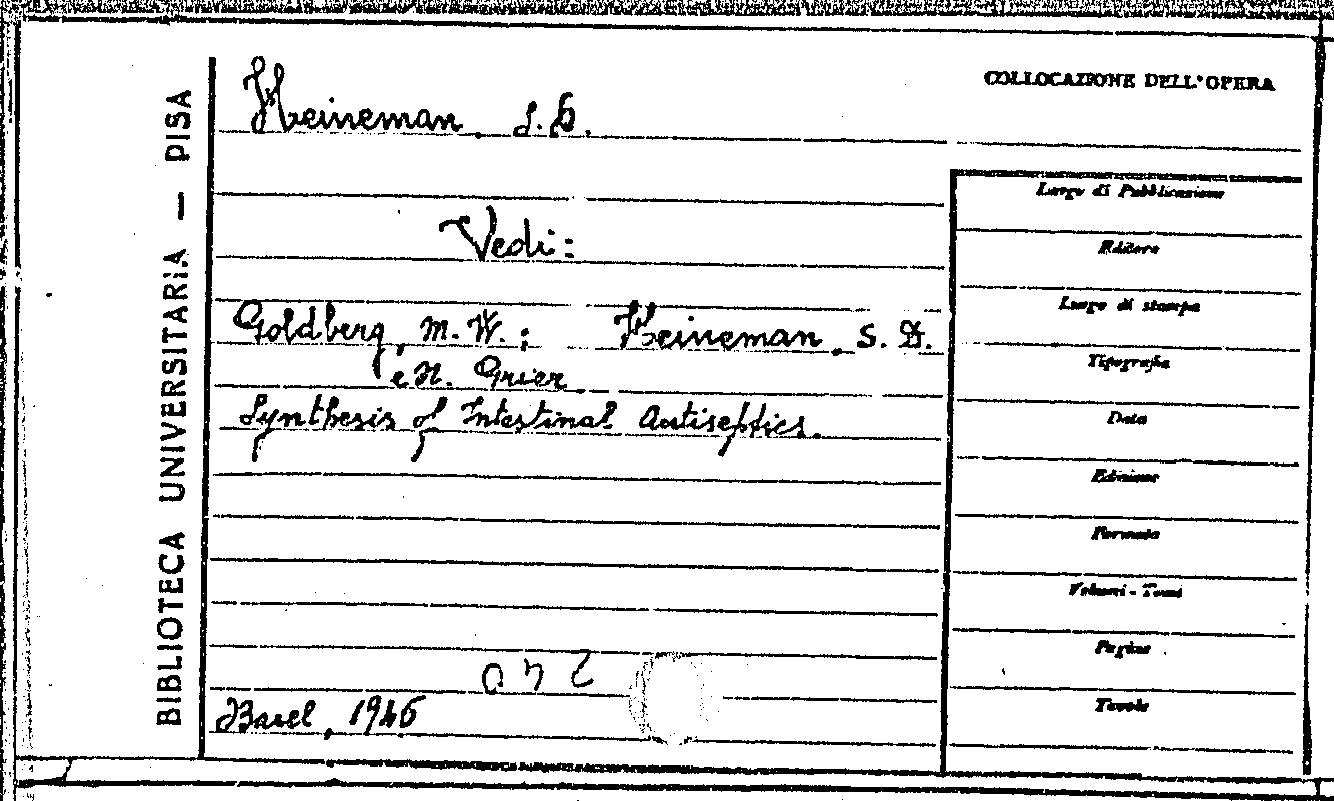 BIBLIOTECA UNIVERSITARIA — PISA
COLLOCAZIONE DELL'OPERA
Heineman, S. D.
Vedi:
Goldberg, M. W.; Heineman, S. D.
e N. Grier
Synthesis of Intestinal Antiseptics.
Basel, 1946
Luogo di Pubblicazione
Editore
Luogo di stampa
Tipografia
Data
Edizione
Formato
Volumi - Tomi
Pagine
Tavole